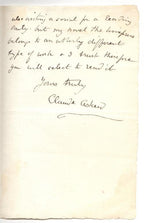 also writing a serial for a leading
daily but my novel the
belongs to an entirely different
type of work & I trust therefore
you will select to read it
Yours truly
Claude Askew